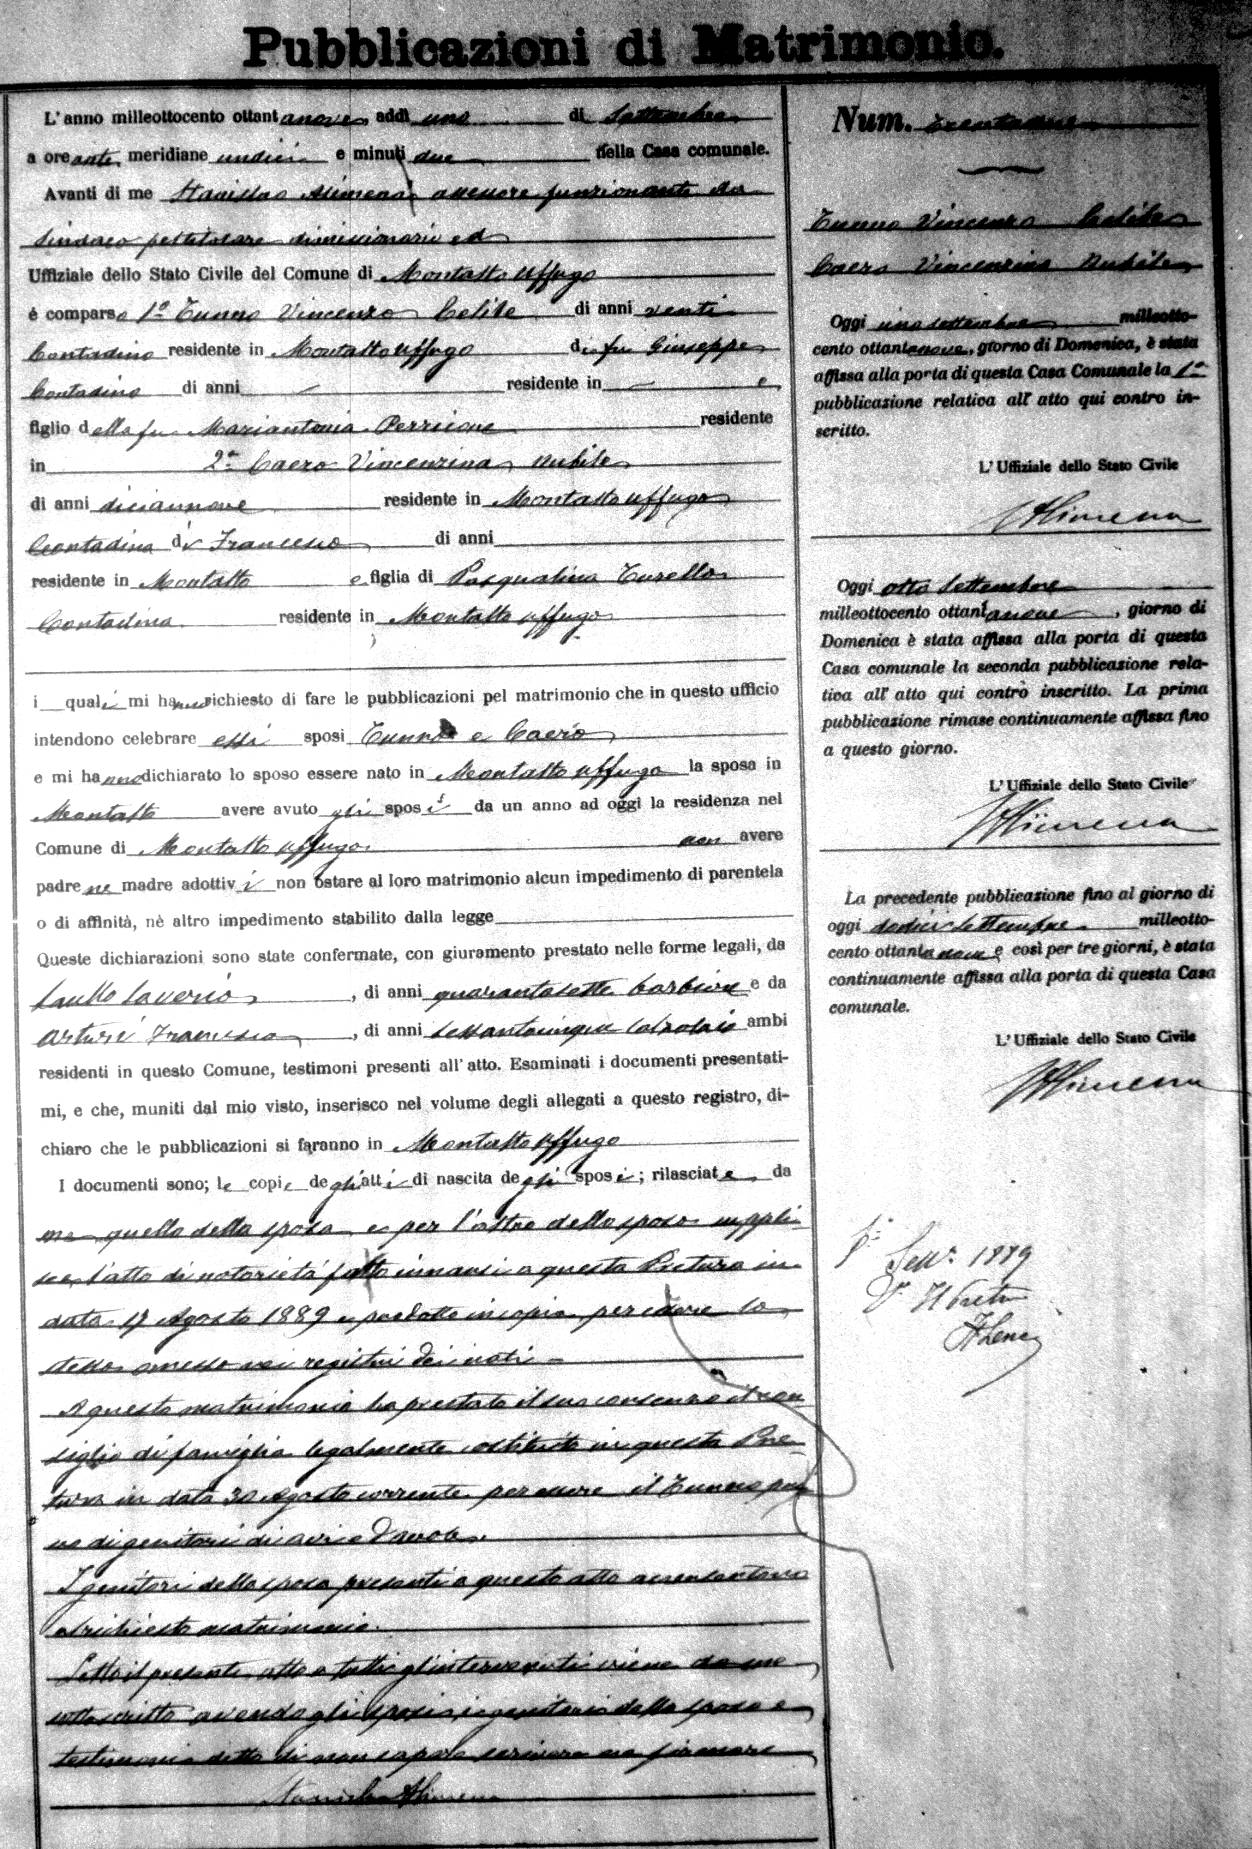 Pubblicazioni di Matrimonio.
L'anno milleottocento ottantanove, addì uno di Settembre
a ore anti meridiane undici e minuti due nella Casa comunale.
Avanti di me Stanislao Alimena assessore funzionante da
Sindaco pel titolare dimissionario ed
Uffiziale dello Stato Civile del Comune di Montalto Uffugo
è comparso 1º Tunno Vincenzo Celibe di anni venti
Contadino residente in Montalto Uffugo di fu Giuseppe
Contadino di anni residente in e
figlio della fu Mariantonia Perrione residente
in 2ª Caero Vincenzina nubile
di anni diciannove residente in Montalto Uffugo
Contadina di Francesco di anni
residente in Montalto e figlia di Pasqualina Turello
Contadina residente in Montalto Uffugo
i quali mi hanno richiesto di fare le pubblicazioni pel matrimonio che in questo ufficio
intendono celebrare essi sposi Tunno e Caero
e mi hanno dichiarato lo sposo essere nato in Montalto Uffugo la sposa in
Montalto avere avuto gli sposi da un anno ad oggi la residenza nel
Comune di Montalto Uffugo non avere
padre ne madre adottivi non ostare al loro matrimonio alcun impedimento di parentela
o di affinità, nè altro impedimento stabilito dalla legge
Queste dichiarazioni sono state confermate, con giuramento prestato nelle forme legali, da
Saullo Saverio, di anni quarantasette barbiere e da
Arturi Francesco, di anni sessantacinque calzolaio ambi
residenti in questo Comune, testimoni presenti all'atto. Esaminati i documenti presentati-
mi, e che, muniti dal mio visto, inserisco nel volume degli allegati a questo registro, di-
chiaro che le pubblicazioni si faranno in Montalto Uffugo
I documenti sono; le copie degli atti di nascita degli sposi; rilasciate da
me quella della sposa e per l'altra dello sposo suppli-
sce l'atto di notorietà fatto innanzi a questa Pretura in
data 17 Agosto 1889 e prodotto in copia per essere lo
stesso omesso nei registri dei nati =
A questo matrimonio ha prestato il suo consenso il con
siglio di famiglia legalmente costituito in questa Pre
tura in data 30 Agosto corrente per essere il Tunno pri
vo di genitori di avi e d'avole.
I genitori della sposa presenti a questo atto acconsentono
al richiesto matrimonio.
Letto il presente atto a tutti gl'intervenuti viene da me
sottoscritto avendo gli sposi i genitori della sposa e
testimoni detto di non sapere scrivere ne firmare
Stanislao Alimena
Num. trentadue
Tunno Vincenzo Celibe
Caero Vincenzina Nubile
Oggi uno settembre milleotto-
cento ottantanove, giorno di Domenica, è stata
affissa alla porta di questa Casa Comunale la 1ª
pubblicazione relativa all'atto qui contro in-
scritto.
L'Uffiziale dello Stato Civile
SAlimena
Oggi otto Settembre
milleottocento ottantanove, giorno di
Domenica è stata affissa alla porta di questa
Casa comunale la seconda pubblicazione rela-
tiva all'atto qui contrò inscritto. La prima
pubblicazione rimase continuamente affissa fino
a questo giorno.
L'Uffiziale dello Stato Civile
SAlimena
La precedente pubblicazione fino al giorno di
oggi dodici Settembre milleotto-
cento ottantanove e così per tre giorni, è stata
continuamente affissa alla porta di questa Casa
comunale.
L'Uffiziale dello Stato Civile
SAlimena
Sett. 1889